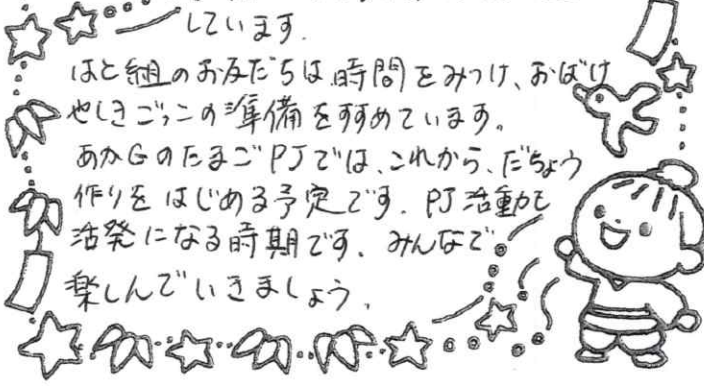 しています.
はと組のお友だちは時間をみつけ、おばけ
やしきごっこの準備をすすめています。
あかGのたまごPJでは、これから、だちょう
作りをはじめる予定です. PJ活動も
活発になる時期です. みんなで
楽しんでいきましょう.